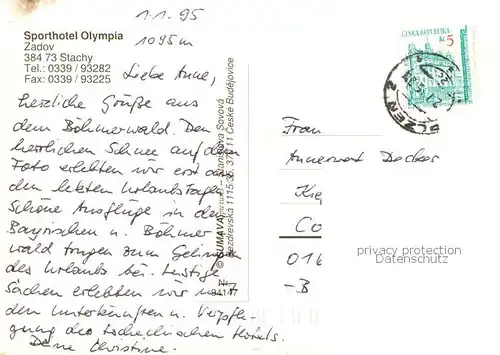 1.1.95
Sporthotel Olympia
Zadov
384 73 Stachy
Tel.: 0339 / 93282
Fax: 0339 / 93225
1095m
Liebe Anne,
herzliche Grüße aus
dem Böhmerwald. Den
herrlichen Schnee auf dem
Foto erlebten wir erst an
den letzten Urlaubstagen.
Schöne Ausflüge in den
Bayrischen u. Böhmer
wald trugen zum Gelingen
des Urlaubs bei. Lustige
Sachen erlebten wir in
den Unterkünften u. Verpfle-
gung des tschechischen Hotels.
Deine Christine.
© ŠUMAVA Stanislava Sovová
37011 České Budějovice
Nr.
84147
ČESKÁ REPUBLIKA
Kč 5
PLZEŇ 2
Frau
Annerose Decker
Co
016
-B
privacy protection
Datenschutz